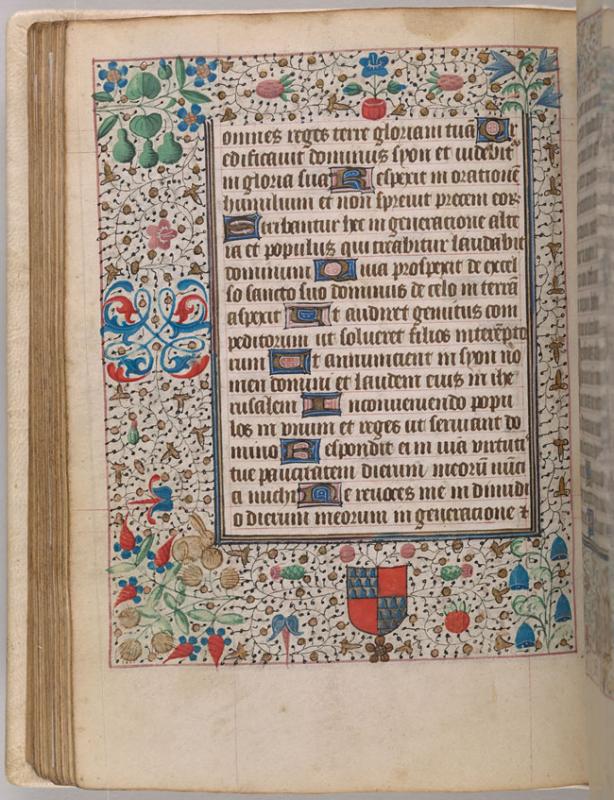 omnes reges terre gloriam tuā Qr
edificauit dominus syon et videbit̄
in gloria sua Respexit in orationē
humilium et non spreuit precem eor
Scribantur hec in generacione alte
ra et populus qui creabitur laudabit
dominum Quia prospexit de excel
so sancto suo dominus de celo in terrā
aspexit Et audiret gemitus com
peditorum ut solueret filios interēpto
rum Et annuncient in syon no
men domini et laudem eius in ihe
rusalem In conueniendo popu
los in vnum et reges ut seruiant do
mino Respondit ei in via virtuti
tue paucitatem dierum meorū nūci
a michi Ne reuoces me in dimidi
o dierum meorum in generacione ⁊